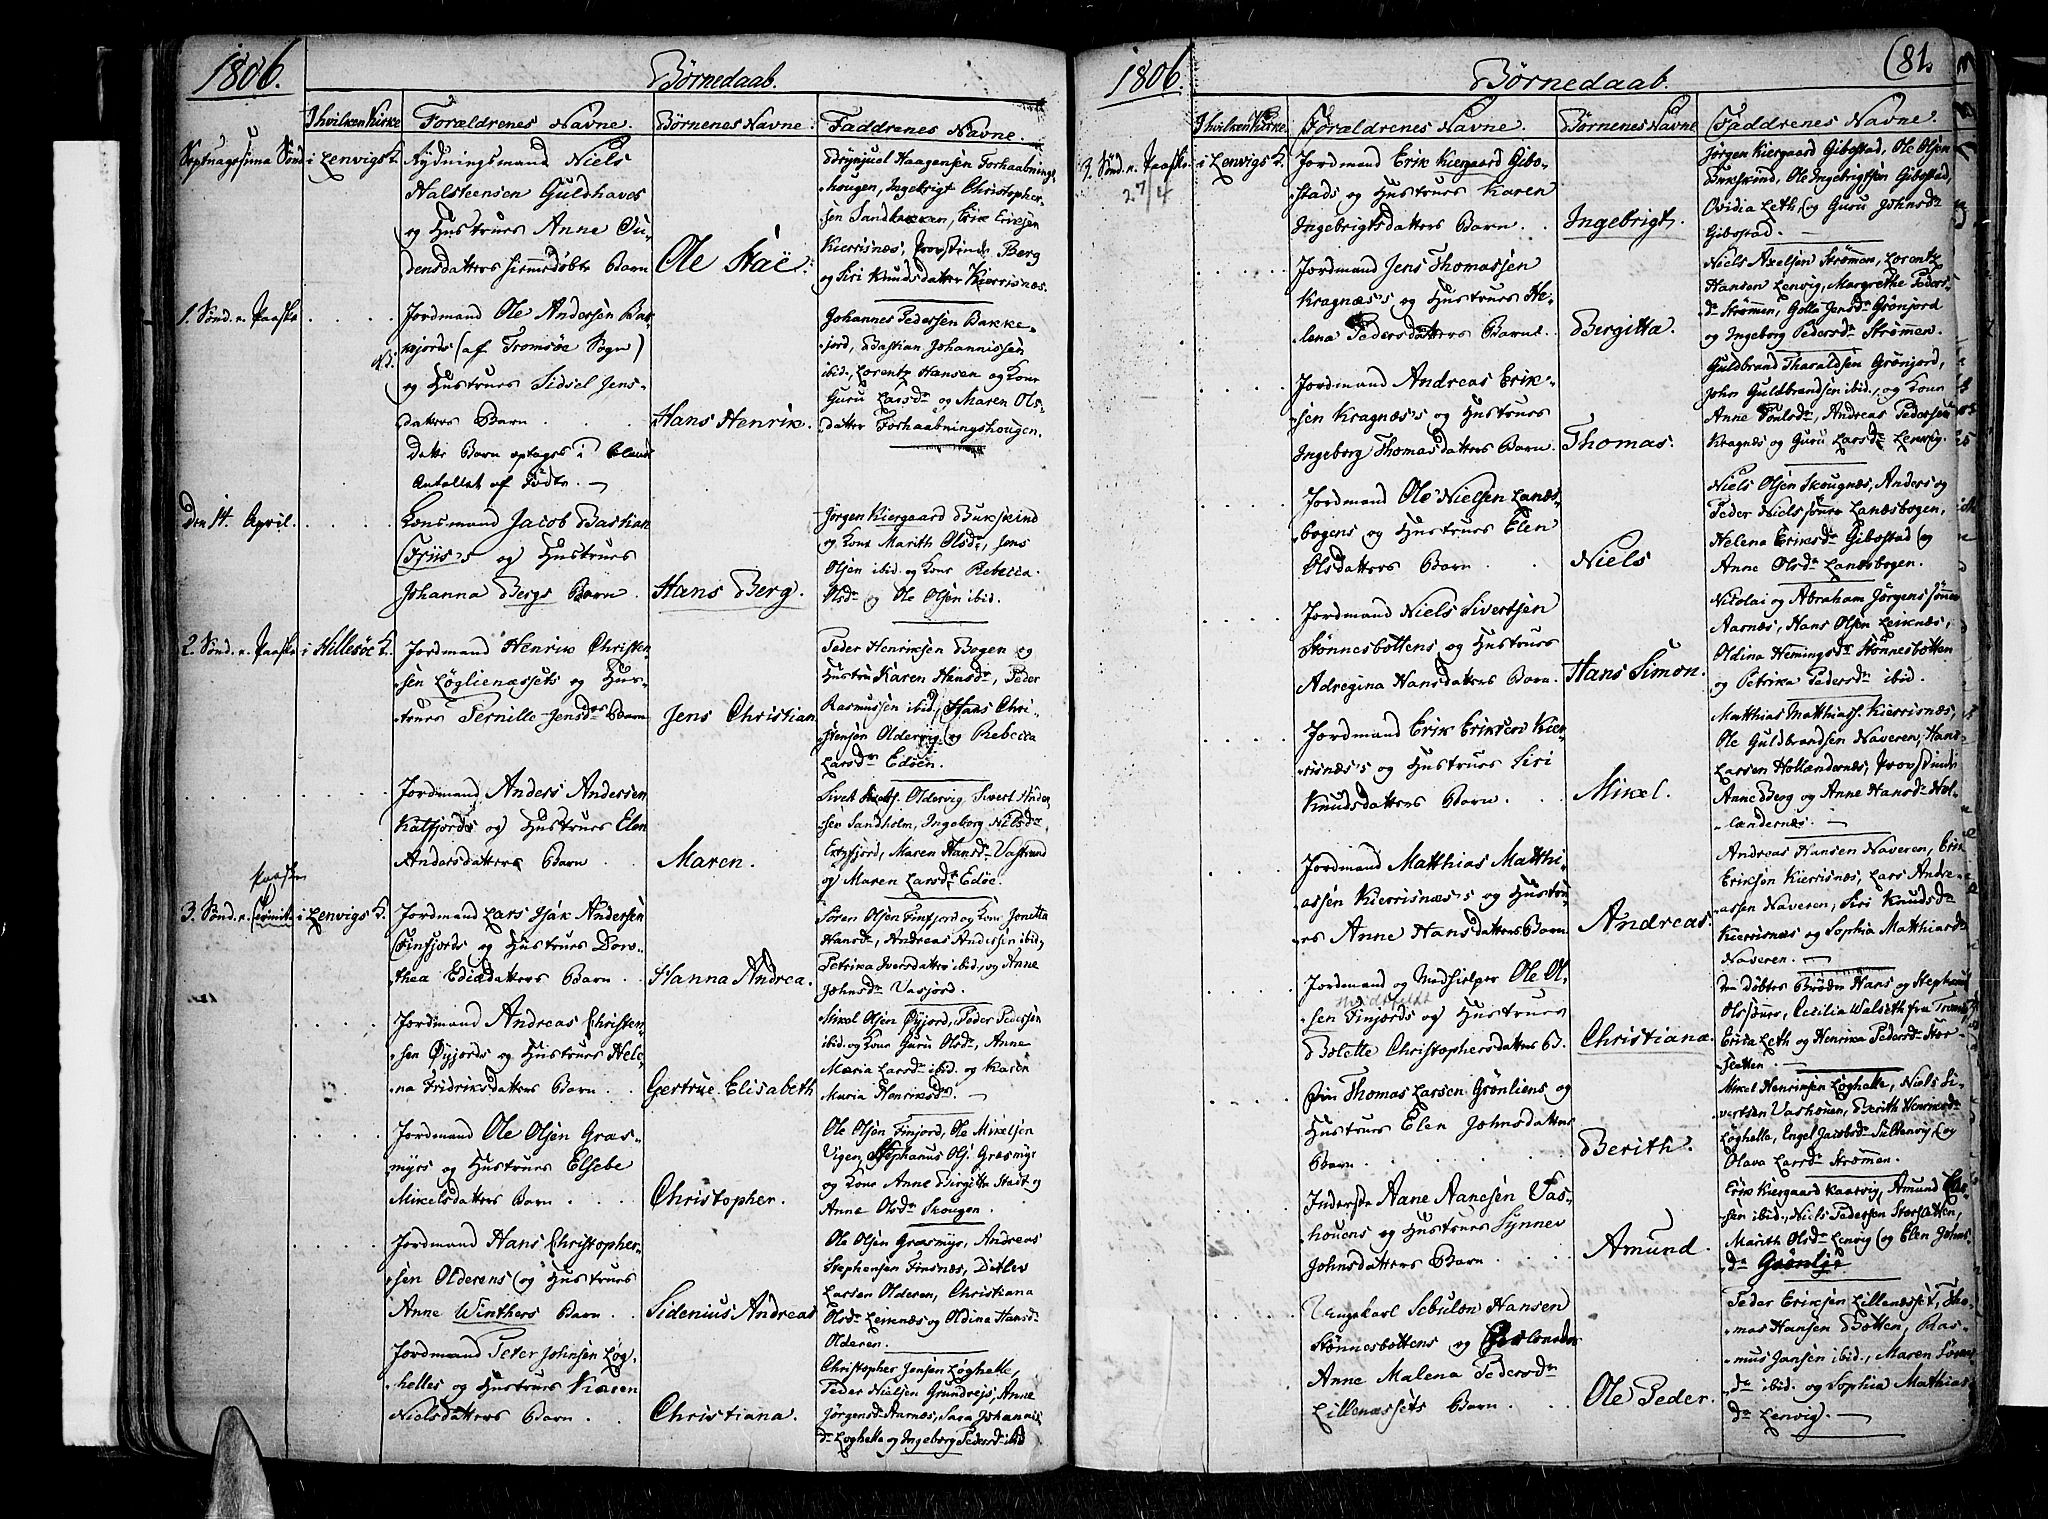 1806.
Børnedaab.
I hvilken Kirke
Forældrenes Navne.
Børnenes Navne.
Faddrenes Navne.
Septuagesima Sønd
i Lenvigs K.
Rydningsmand Niels
Halsteensen Guldhaves
og Hustrues Anne Ou-
densdatters hiemedøbte Barn
Ole Staë.
Brynjuel Haagensen Forhaabnings-
hougen, Ingebrigt Christopher-
sen Sandbakken, Erik Eriksen
Kierrisnæs, Provstinde Berg
og Siri Knudsdatter Kierrisnæs.
1. Sønd. e. Paaske
Jordmand Ole Andersen Bak-
kejords (af Tromsøe Sogn)
NB.
og Hustrues Sidsel Jens-
datters Barn
Dette Barn optages i blandt
Antallet af Fødte.
Hans Henrik.
Johannes Pedersen Bakke-
jord, Bastian Johannissen
ibid., Lorentz Hansen og Kone
Guru Larsdr og Maren Ols-
datter Forhaabningshougen.
den 14. April.
Lensmand Jacob Bastian
Friis's og Hustrues
Johanna Bergs Barn.
Hans Berg.
Jørgen Kiergaard Bukskind
og Kone Marith Olsdr, Jens
Olsen ibid. og Kone Rebecca
Olsdr og Ole Olsen ibid.
2. Sønd. e. Paaske
i Hillesøe K.
Jordmand Henrik Christen-
sen Løglienæssets og Hus-
trues Pernille Jensdrs Barn
Jens Christian
Peder Henriksen Bogen og
Hustru Karen Hansdr, Peder
Rasmussen ibid., Hans Chri-
stensen Oldervig og Rebecca
Larsdr Edøen.
Jordmand Anders Andersen
Katfjords og Hustrues Elen
Andersdatters Barn
Maren.
Oldervig, Sivert Ander-
sen Sandholm, Ingeborg Nilsdr
Maren Hansdr Vastrand
og Maren Larsdr Edøe.
Paaske
3. Sønd. e. Trinit.
i Lenvigs K.
Jordmand Lars Isak Andersen
Finfjords og Hustrues Doro-
thea Ediædatters Barn
Hanna Andrea.
Søren Olsen Finfjord og Kone Jonetta
Hansdr, Andreas Andersen ibid,
Petrika Iversdatter ibid., og Anne
Johnsdr Vasjord.
Jordmand Andreas Christen-
sen Øyjords og Hustrues Hele-
na Fridriksdatters Barn
Gertrue Elisabeth
Mikel Olsen Øyjord, Peder Pedersen
ibid. og Kone Guru Olsdr, Anne
Maria Larsdr ibid. og Karen
Maria Henriksdr.
Jordmand Ole Olsen Græs-
myrs og Hustrues Elsebe
Mikelsdatters Barn
Christopher.
Ole Olsen Finjord, Ole Mikelsen
Vigen, Stephanus Ols. Græsmyr
og Kone Anne Birgitte Stadt og
Anne Olsdr Skougen.
Jordmand Hans Christopher-
sen Olderens og Hustrues
Anne Winthers Barn
Sidenius Andreas
Ole Olsen Græsmyr, Andreas
Stephensen Finsnæs, Detlev
Larsen Olderen, Christiana
Olsdr Leiknæs og Oldina Hansdr
Olderen.
Jordmand Peter Johnsen Løg-
helles og Hustrues Karen
Nielsdatters Barn
Christiana.
Christopher Jensen Løghelle,
Peder Nielsen Grundvejs, Anne
Jørgensdr Aarnæs, Sara Johannis
dr Løghella og Ingeborg Pedersdr ibid
1806.
Børnedaab.
(81.
I hvilken Kirke
Forældrenes Navne.
Børnenes Navne
Faddrenes Navne.
3. Sønd. e. Paaske
27/4
i Lenvigs K.
Jordmand Erik Kiergaard Gibo-
stads og Hustrues Karen
Ingebrigtsdatters Barn
Ingebrigt.
Jørgen Kiergaard Gibostad, Ole Olsen
Bukskind, Ole Ingebrigtsen Gibostad,
Ovidia Leth og Guru Johnsdr
Gibostad.
Jordmand Jens Thomassen
Kragnæs's og Hustrues He-
lena Pedersdatters Barn
Bergitta.
Niels Axelsen Strømen, Lorentz
Hansen Lenvig, Margrethe Peders-
dr Strømen, Golla Jensdr Grønjord
og Ingeborg Pedersdr Strømmen.
Jordmand Andreas Erik-
sen Kragnæs's og Hustrues
Ingeborg Thomasdatters Barn.
Thomas.
Guldbrand Tharaldsen Grønjord,
John Guldbrandsen ibid., og Kone
Anne Poulsdr, Andreas Pedersen
Kragnæs og Guru Larsdr Lenvig.
Jordmand Ole Nielsen Lanæs-
bogens og Hustrues Elen
Olsdatters Barn
Niels
Niels Olsen Skougnæs, Anders og
Peder Nielssønner Lanæsbogen,
Helena Eriksdr Gibostad og
Anne Olsdr Lanæsbogen.
Jordmand Niels Sivertsen
Stønnesbottens og Hustrues
Adregina Hansdatters Barn
Hans Simon.
Nicolai og Abraham Jørgenssønner
Aarnæs, Hans Olsen Leiknæs,
Oldina Hemingsdr Stønnesbotten
og Petrika Pedersdr ibid.
Jordmand Erik Eriksen Kier-
risnæs's og Hustrues Siri
Knudsdatters Barn
Mikel.
Matthias Matthias. Kierrisnæs,
Ole Guldbrandsen Naveren, Hans
Larsen Hollændernæs, Provstinde
Anne Berg og Anne Hansdr Hol-
lændernæs.
Jordmand Matthias Matthi-
assen Kierrisnæs's og Hustru-
es Anne Hansdatters Barn
Andreas.
Andreas Hansen Naveren, Erik
Eriksen Kierrisnæs, Lars Andre-
assen Naveren, Siri Knudsdr
Kierrisnæs og Sophia Matthiasdr
Naveren.
Jordmand og Medhielper Ole Ol-
sen Finjords og Hustrues
Bolette Christophersdatters B.
Christiane.
Den døbtes Brødre Hans og Stephanus
Olssønner, Cecilia Walseth fra Tromsø,
Erica Leth og Henrika Pedersdr Stor-
sletten.
Thomas Larsen Grønliens og
Hustrues Elen Johnsdatters
Barn
Berith.
Mikel Henriksen Løghelle, Niels Si-
vertsen Vashouen, Berith Henriksdr
Løghella, Engel Jacobsdr Sultenvig og
Olava Larsdr Strømen.
Inderste Aane Aanesen Vas-
houens og Hustrues Synnev
Johnsdatters Barn
Amund.
Erik Kiergaard Kaarvig, Amund Lar-
sen ibid., Niels Pedersen Storsletten,
Marith Olsdr Lenvig og Elen Johns-
dr Grønlie.
Ungekarl Sebulon Hansen
Stønnesbottens og
Anne Malena Pedersdr
Lillenæssets Barn
Ole Peder.
Peder Eriksen Lillenæsset, Tho-
mas Hansen Botten, Ras-
mus Jansen ibid., Maren Sørens
dr ibid. og Sophia Mathias
dr Lenvig.